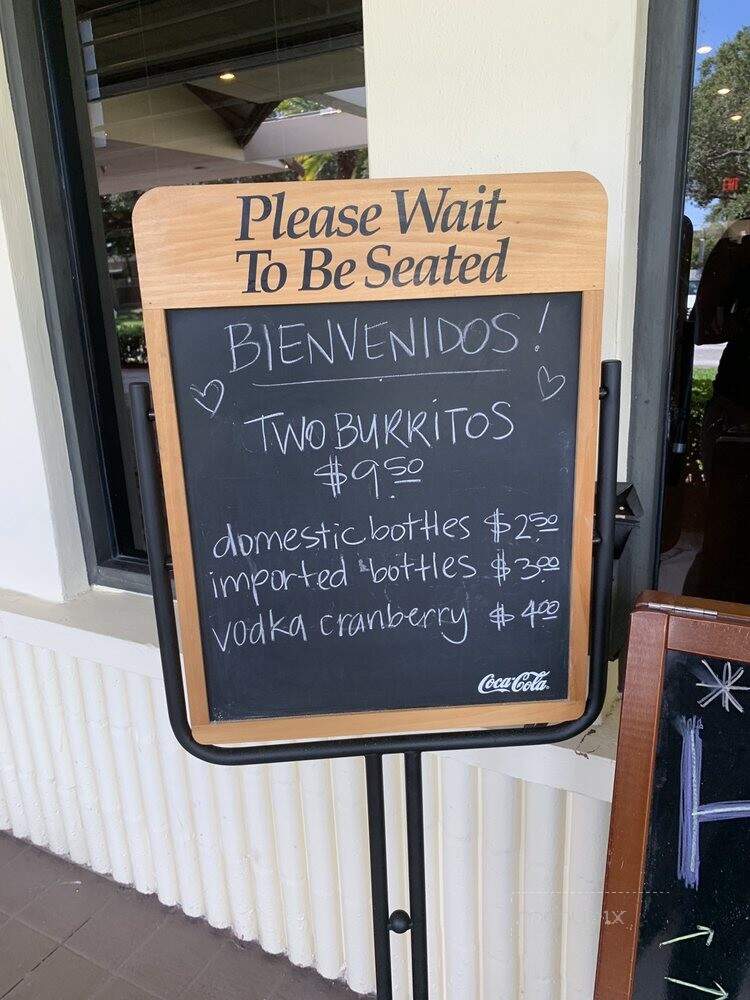 Please Wait
To Be Seated
BIENVENIDOS!
TWO BURRITOS
$9.50
domestic bottles $2.50
imported bottles $3.00
vodka cranberry $4.00
Coca-Cola
EXIT
H